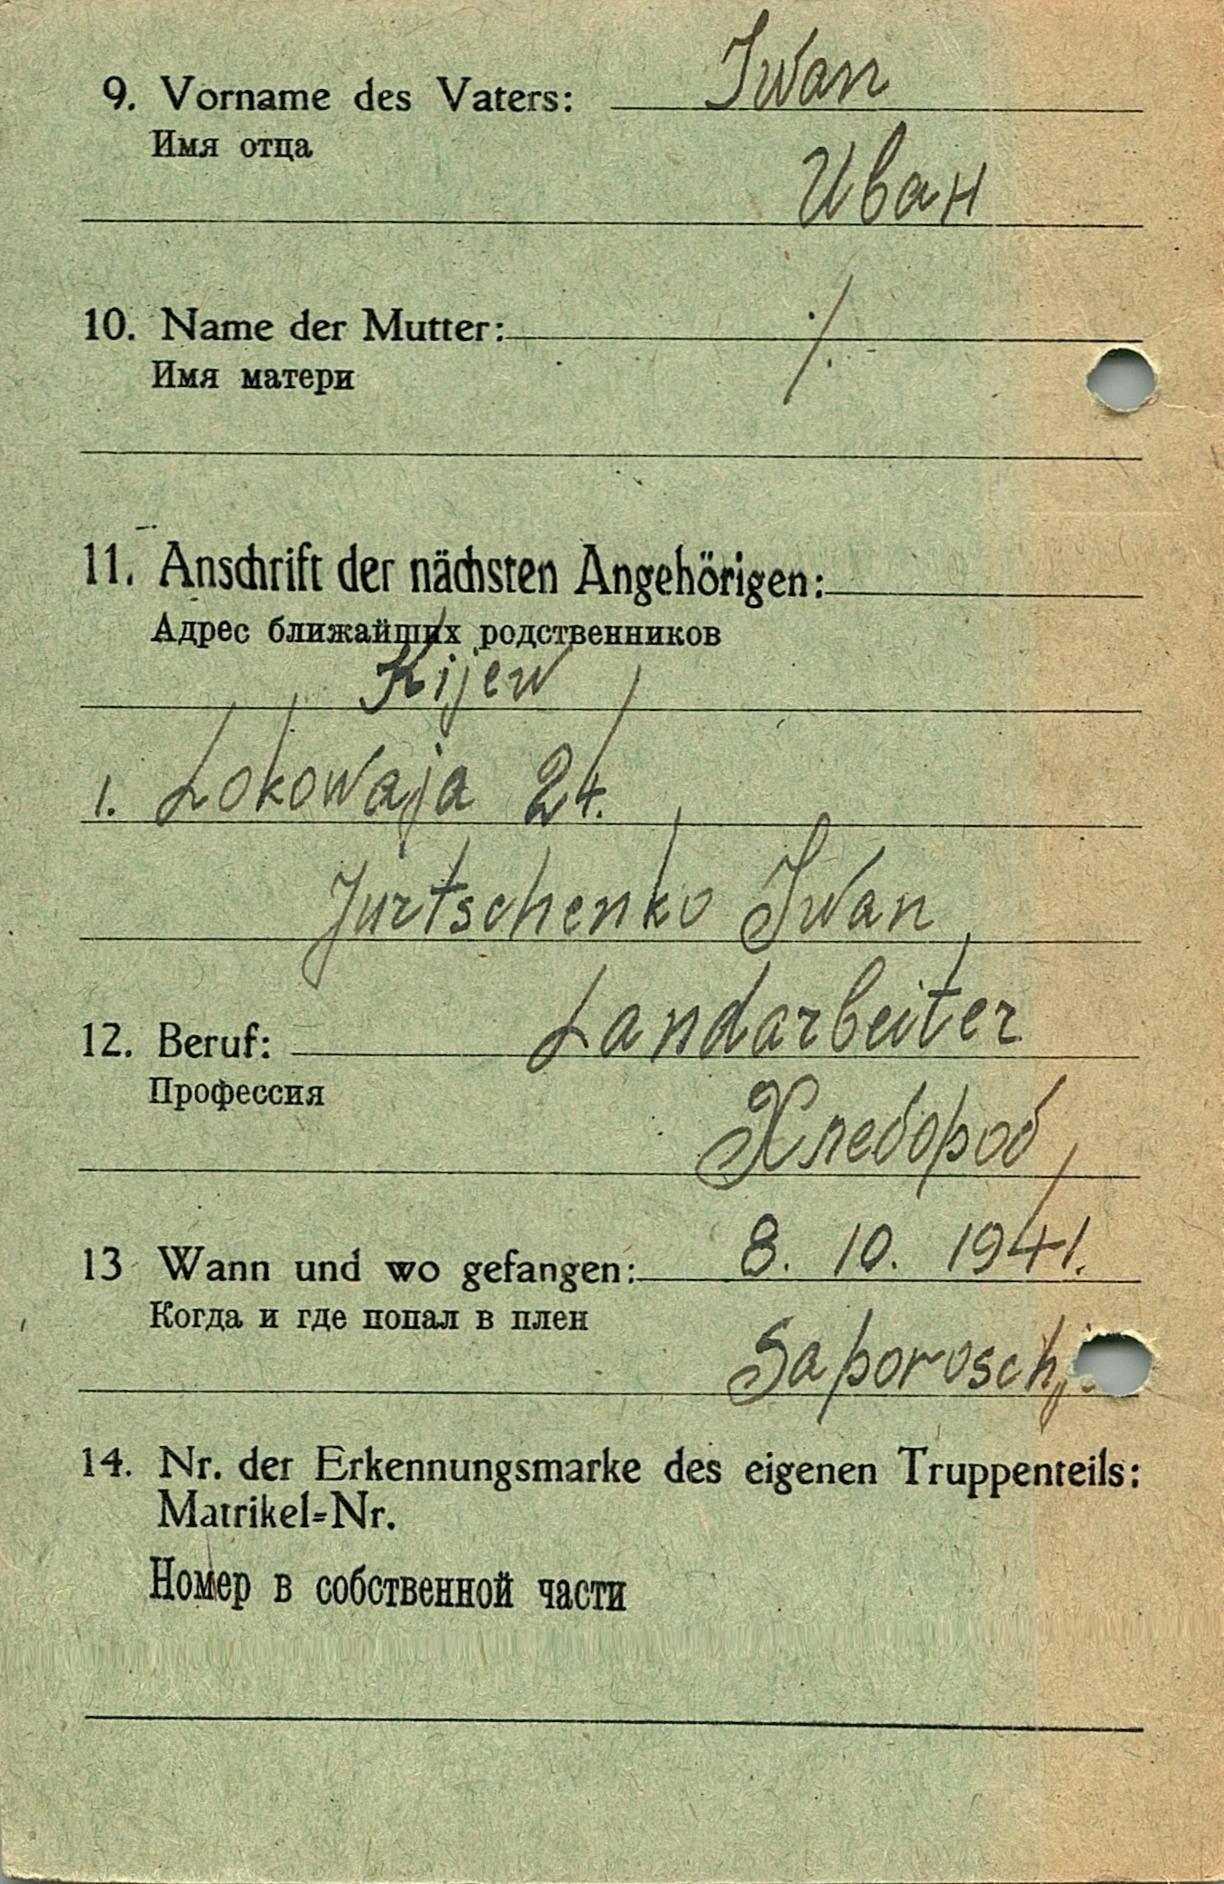 9. Vorname des Vaters: Iwan
Имя отца
Иван
10. Name der Mutter: ./.
Имя матери
11. Anschrift der nächsten Angehörigen:
Адрес ближайших родственников
Kijew
1. Lokowaja 24.
Jurtschenko Iwan
12. Beruf: Landarbeiter
Профессия
Хлебороб
13 Wann und wo gefangen: 8. 10. 1941.
Когда и где попал в плен
14. Nr. der Erkennungsmarke des eigenen Truppenteils:
Matrikel=Nr.
Номер в собственной части